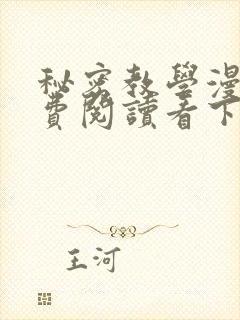 秘密教學漫
費閱讀看下
王河